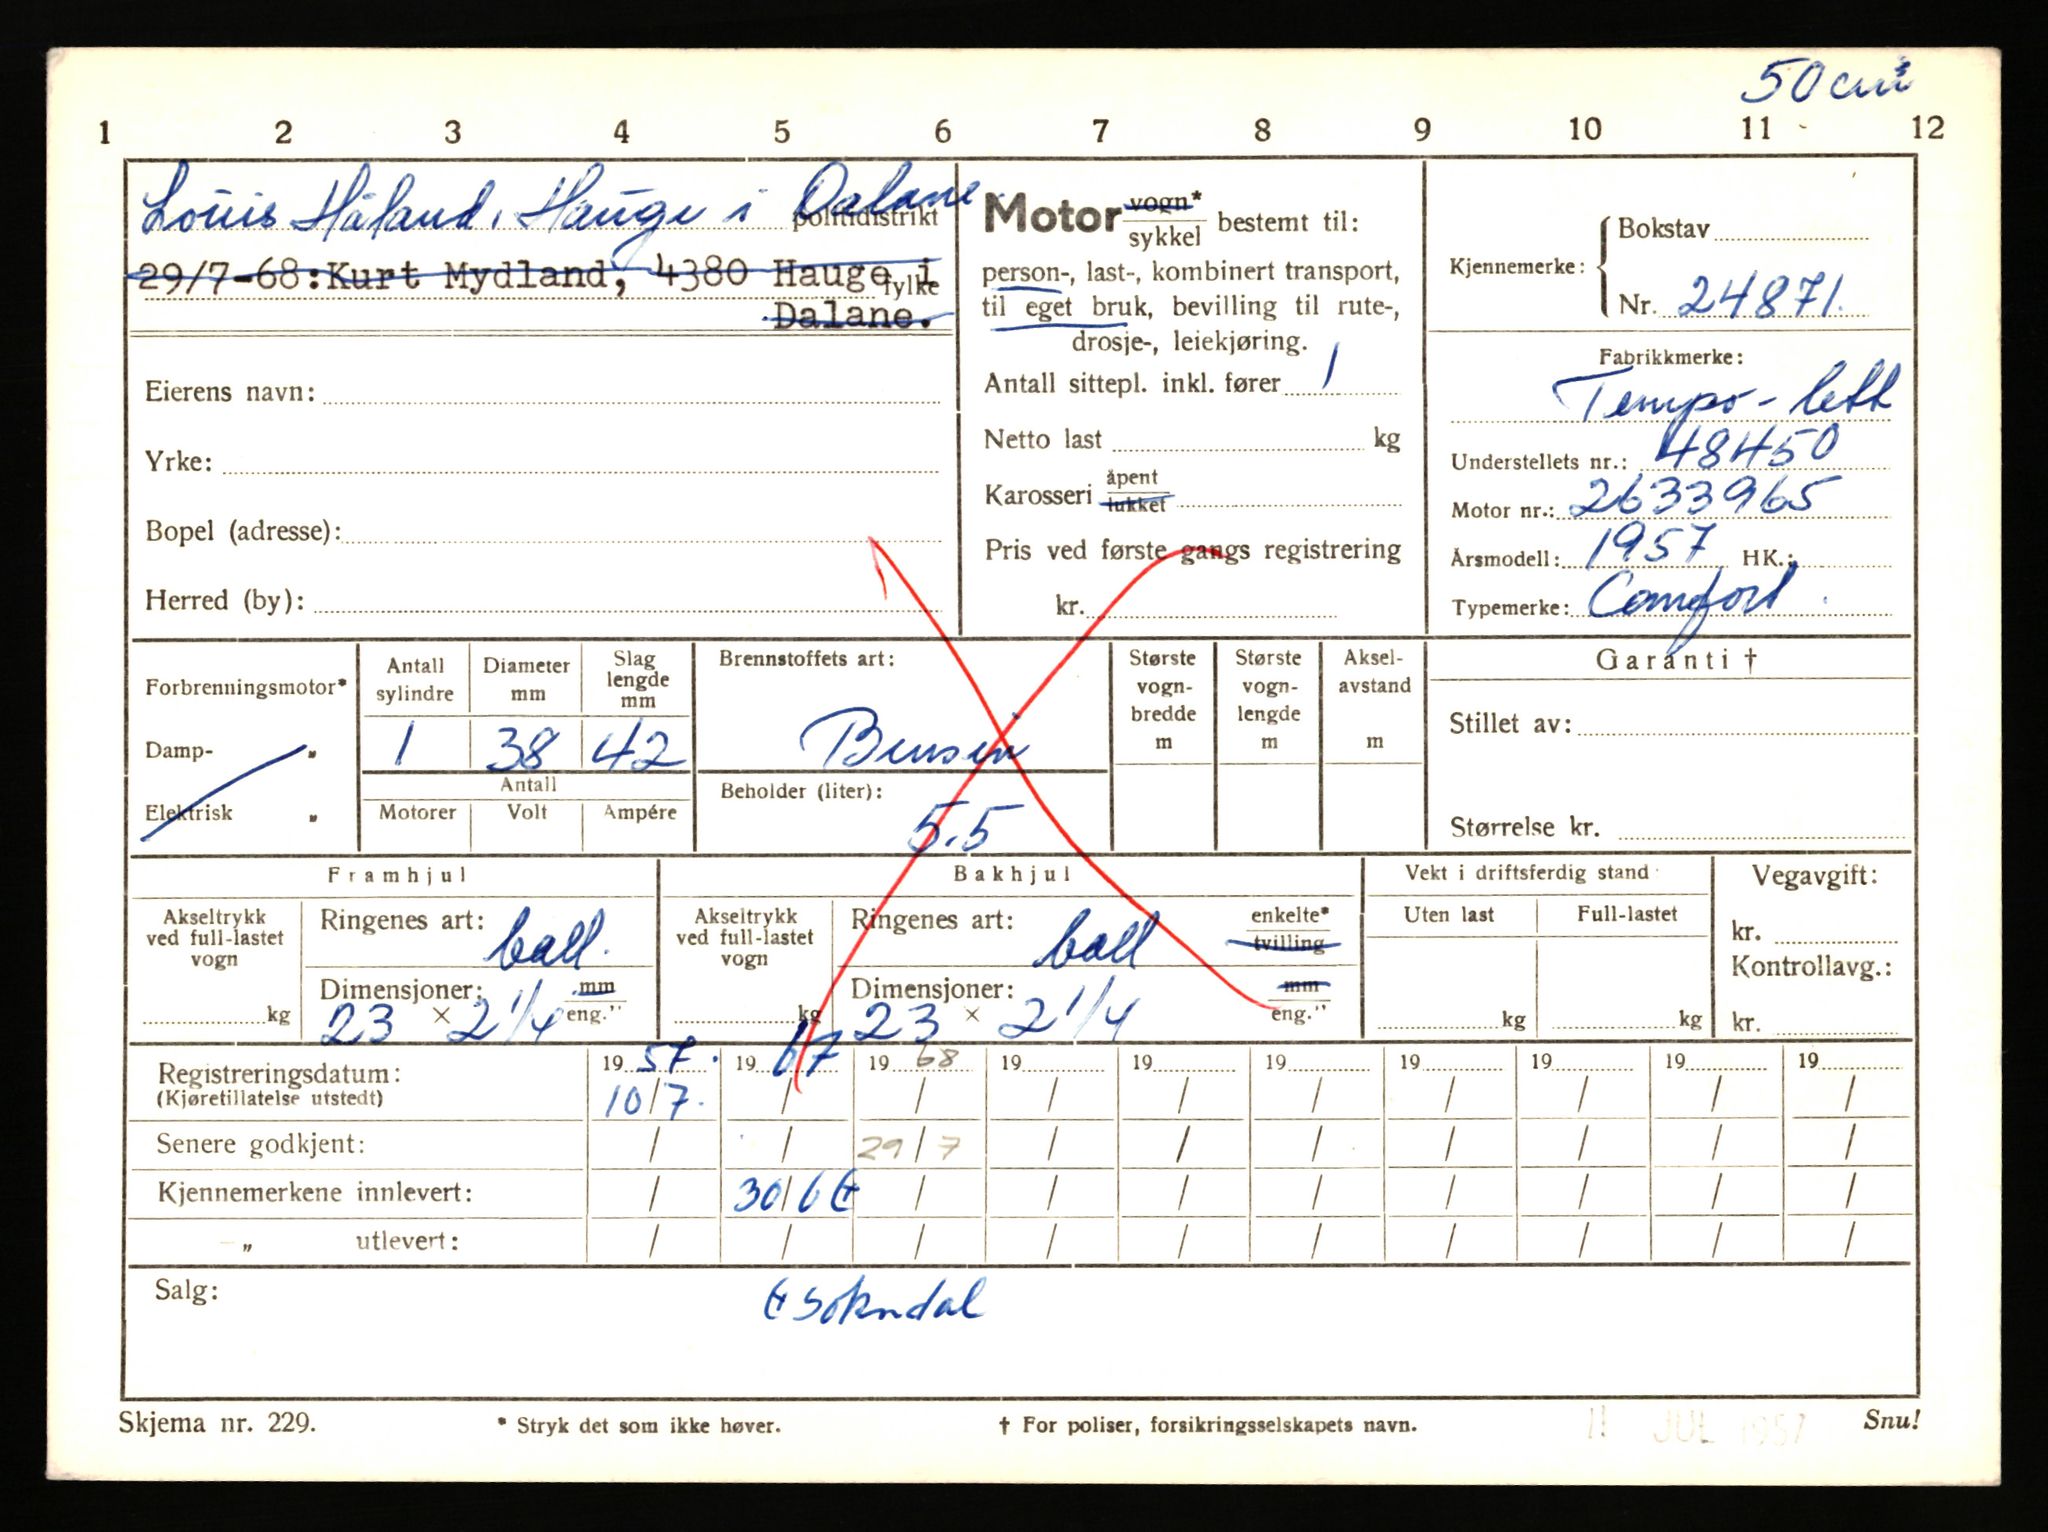 50 cm³
1 2 3 4 5 6 7 8 9 10 11 12
Louis Håland, Hauge i Dalane
politidistrikt
29/7-68: Kurt Mydland, 4380 Hauge i
fylke
Dalane.
Eierens navn:
Yrke:
Bopel (adresse):
Herred (by):
Motor vogn* sykkel bestemt til:
person-, last-, kombinert transport,
til eget bruk, bevilling til rute-,
drosje-, leiekjøring.
Antall sittepl. inkl. fører 1
Netto last kg
Karosseri åpent lukket
Pris ved første gangs registrering
kr.
Kjennemerke: Bokstav
Nr. 24871.
Fabrikkmerke:
Tempo - lett
Understellets nr.: 48450
Motor nr.: 2633965
Årsmodell: 1957 HK.:
Typemerke: Comfort.
Forbrenningsmotor*
Damp- „
Elektrisk „
Antall sylindre
Diameter mm
Slag lengde mm
1 38 42
Antall
Motorer Volt Ampére
Brennstoffets art:
Bensin
Beholder (liter):
5.5
Største vogn-bredde m
Største vogn-lengde m
Aksel-avstand m
Garanti †
Stillet av:
Størrelse kr.
Framhjul
Akseltrykk ved full-lastet vogn
kg
Ringenes art: ball.
Dimensjoner: mm
23 × 2 1/4 eng."
Bakhjul
Akseltrykk ved full-lastet vogn
kg
Ringenes art: ball enkelte* tvilling
Dimensjoner: mm
23 × 2 1/4 eng."
Vekt i driftsferdig stand
Uten last Full-lastet
kg kg
Vegavgift:
kr.
Kontrollavg.:
kr.
Registreringsdatum: 19 57. 19 67 19 68 19 19 19 19 19 19 19
(Kjøretillatelse utstedt) 10/7. / / / / / / / / /
Senere godkjent: / / 29/7 / / / / / / /
Kjennemerkene innlevert: / 30/6 / / / / / / / /
„ utlevert: / / / / / / / / / /
Salg:
Sokndal
Skjema nr. 229.
* Stryk det som ikke høver.
† For poliser, forsikringsselskapets navn.
11 JUL 1957
Snu!